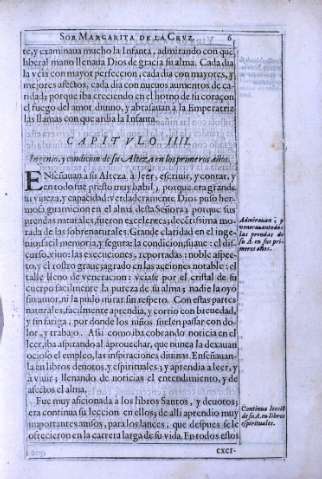 SOR MARGARITA DE LA CRVZ. 6
te, y examinaua mucho la Infanta, admirando con que
liberal mano llenaria Dios de gracia su alma. Cada dia
la veìa con mayor perfeccion, cada dia con mayores, y
mejores afectos, cada dia con nueuos aumentos de ca-
ridad; porque iba creciendo en el horno de su coraçon
el fuego del amor diuino, y abrasauan a la Emperatriz
las llamas con que ardia la Infanta.
CAPITVLO IIII.
Ingenio, y condicion de su Alteza en los primeros años.
ENseñauan a su Alteza a leer, escriuir, y contar, y
en todo fue presto muy habil, porque era grande
su viueza, y capacidad: verdaderamente Dios puso her-
mosa guarnicion en el alma desta Señora, porque sus
prendas naturales fueron excelentes; decentissima mo-
rada de las sobrenaturales. Grande claridad en el inge-
nio, facil memoria, y segura: la condicion, suaue: el dis-
curso, viuo: las execuciones, reportadas: noble aspec-
to, y el rostro graue; agrado en las acciones notable: el
talle lleno de veneracion: veìase por el cristal de su
cuerpo facilmente la pureza de su alma; nadie la oyò
sin amor, ni la pudo mirar sin respeto. Con estas partes
naturales, facilmente aprendia, y corrio con breuedad,
y sin fatiga, por donde los niños suelen passar con do-
lor, y trabajo. Assi como iba cobrando noticia en el
leer, iba aspirando al aprouechar, que nunca la dexauan
ocioso el empleo, las inspiraciones diuinas. Enseñauan-
la en libros deuotos, y espirituales; y aprendia a leer, y
a viuir; llenando de noticias el entendimiento, y de
afectos el alma.
Fue muy aficionada a los libros Santos, y deuotos,
era continua su leccion en ellos; de alli aprendio muy
importantes auisos, para los lances, que despues se le
ofrecieron en la carrera larga de su vida. En todos ellos
exci-
Admirauan, y
venerauan todos
las prendas de
su A. en sus pri-
meros años.
Continua lecciō
de su A. en libros
espirituales.